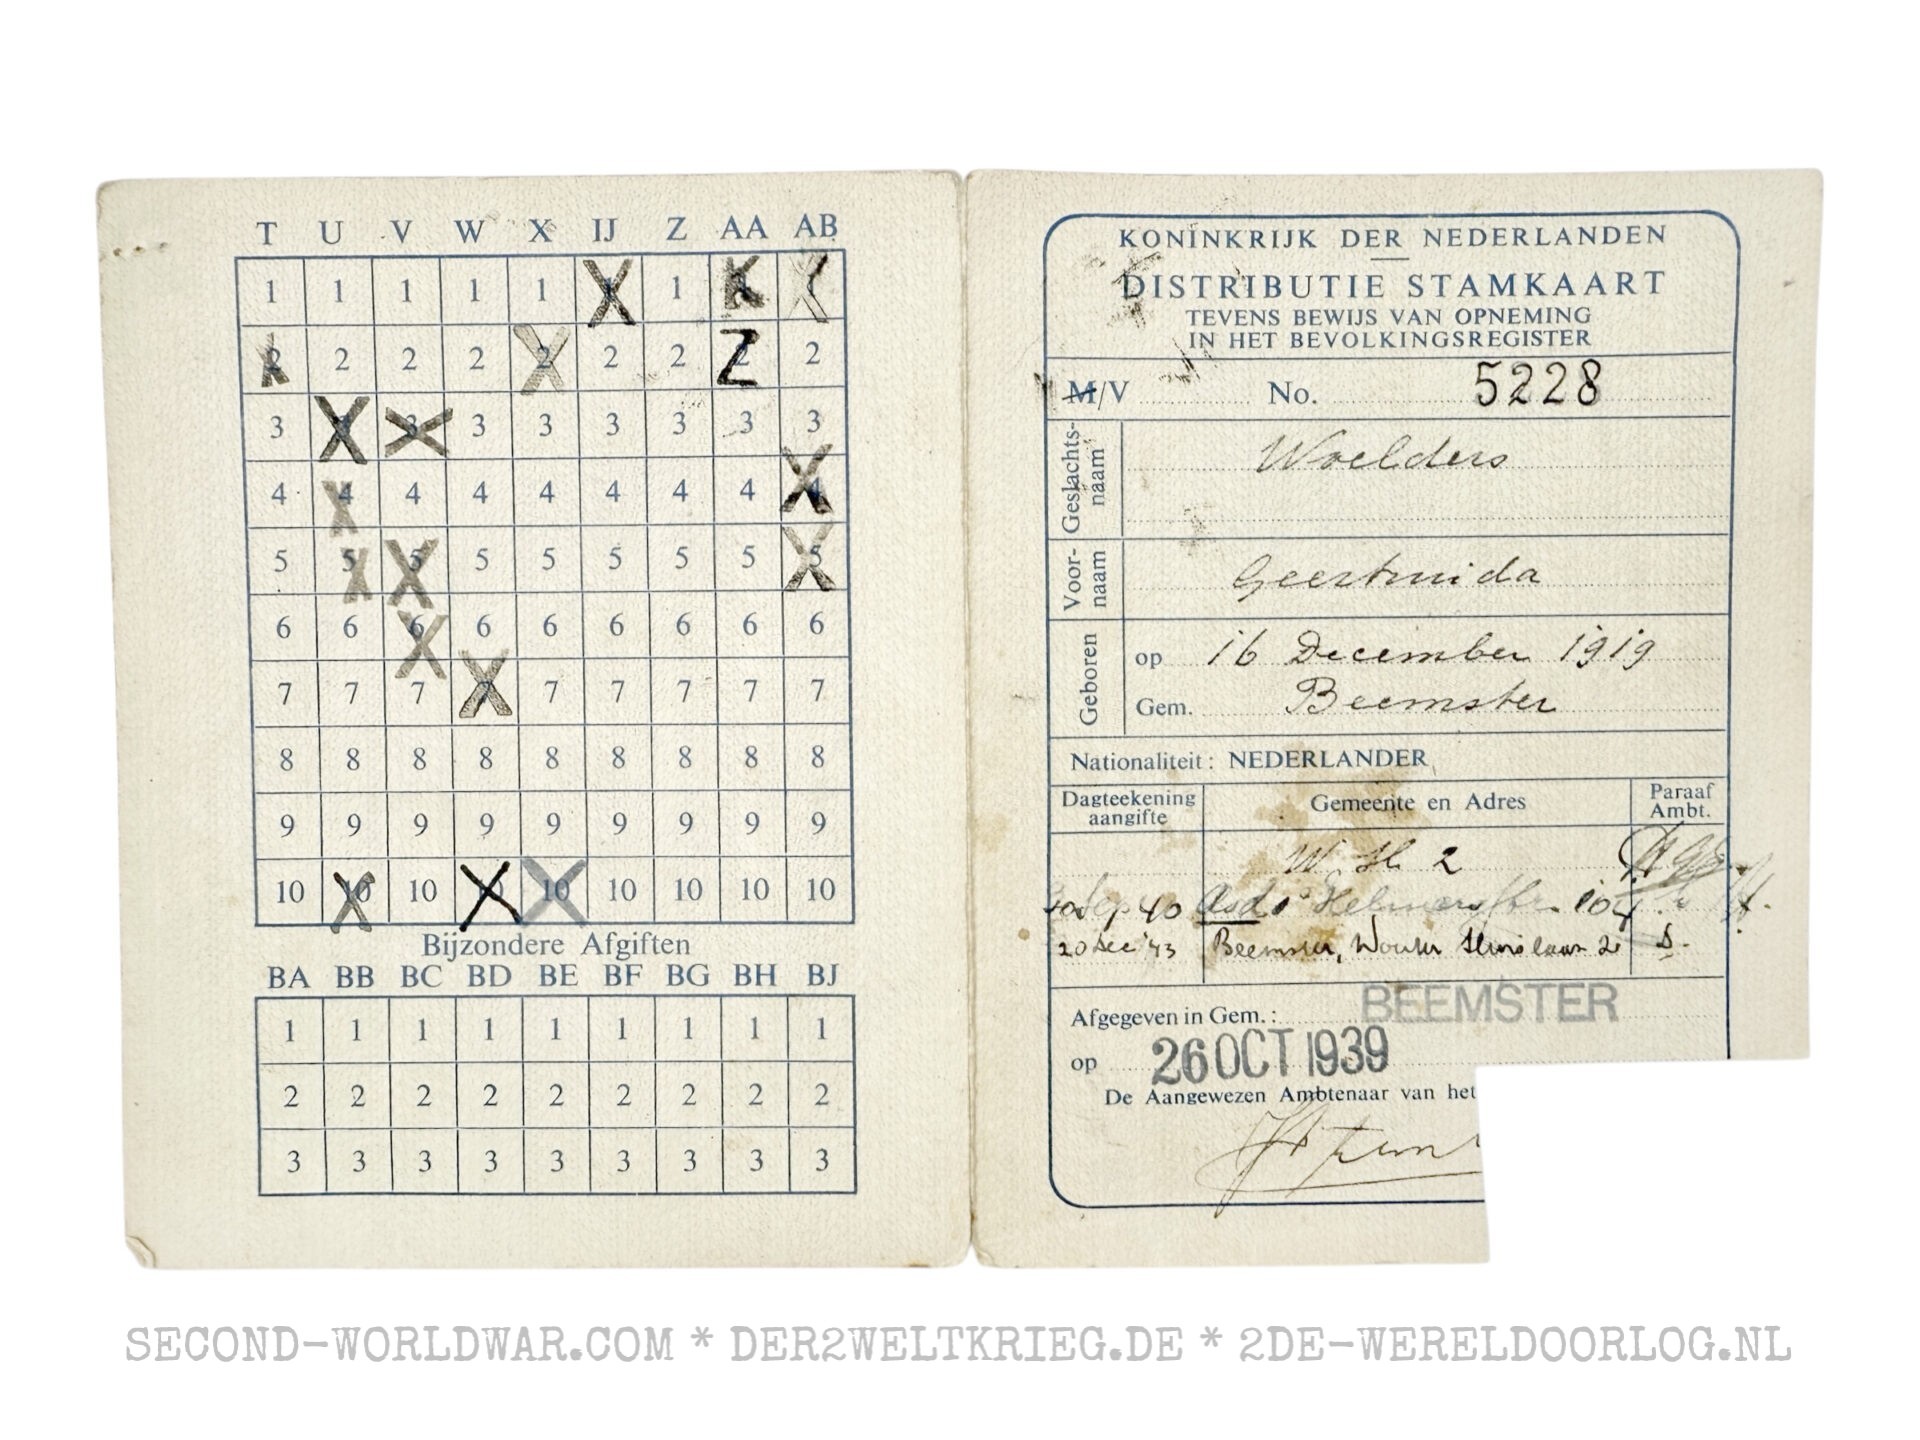 T U V W X IJ Z AA AB
1 1 1 1 1 1
2 2 2 2 2 2 2 2
3 3 3 3 3 3 3 3
4 4 4 4 4 4 4 4 4
5 5 5 5 5 5 5 5 5
6 6 6 6 6 6 6 6 6
7 7 7 7 7 7 7 7
8 8 8 8 8 8 8 8 8
9 9 9 9 9 9 9 9 9
10 10 10 10 10 10 10 10
Bijzondere Afgiften
BA BB BC BD BE BF BG BH BJ
1 1 1 1 1 1 1 1 1
2 2 2 2 2 2 2 2 2
3 3 3 3 3 3 3 3 3
KONINKRIJK DER NEDERLANDEN
DISTRIBUTIE STAMKAART
TEVENS BEWIJS VAN OPNEMING
IN HET BEVOLKINGSREGISTER
M/V No. 5228
Geslachts-
naam Woelders
Voor-
naam Geertruida
Geboren op 16 December 1919
Gem. Beemster
Nationaliteit: NEDERLANDER
Dagteekening
aangifte Gemeente en Adres Paraaf
Ambt.
W. 2
Sep 40 Asd. 104
20 Dec '43 Beemster, Wouter Sluislaan 2
Afgegeven in Gem.: BEEMSTER
op 26 OCT 1939
De Aangewezen Ambtenaar van het
SECOND-WORLDWAR.COM * DER2WELTKRIEG.DE * 2DE-WERELDOORLOG.NL